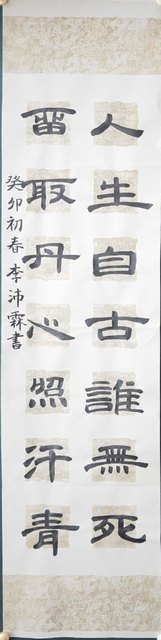 人生自古誰無死
留取丹心照汗青
癸卯初春李沛霖書